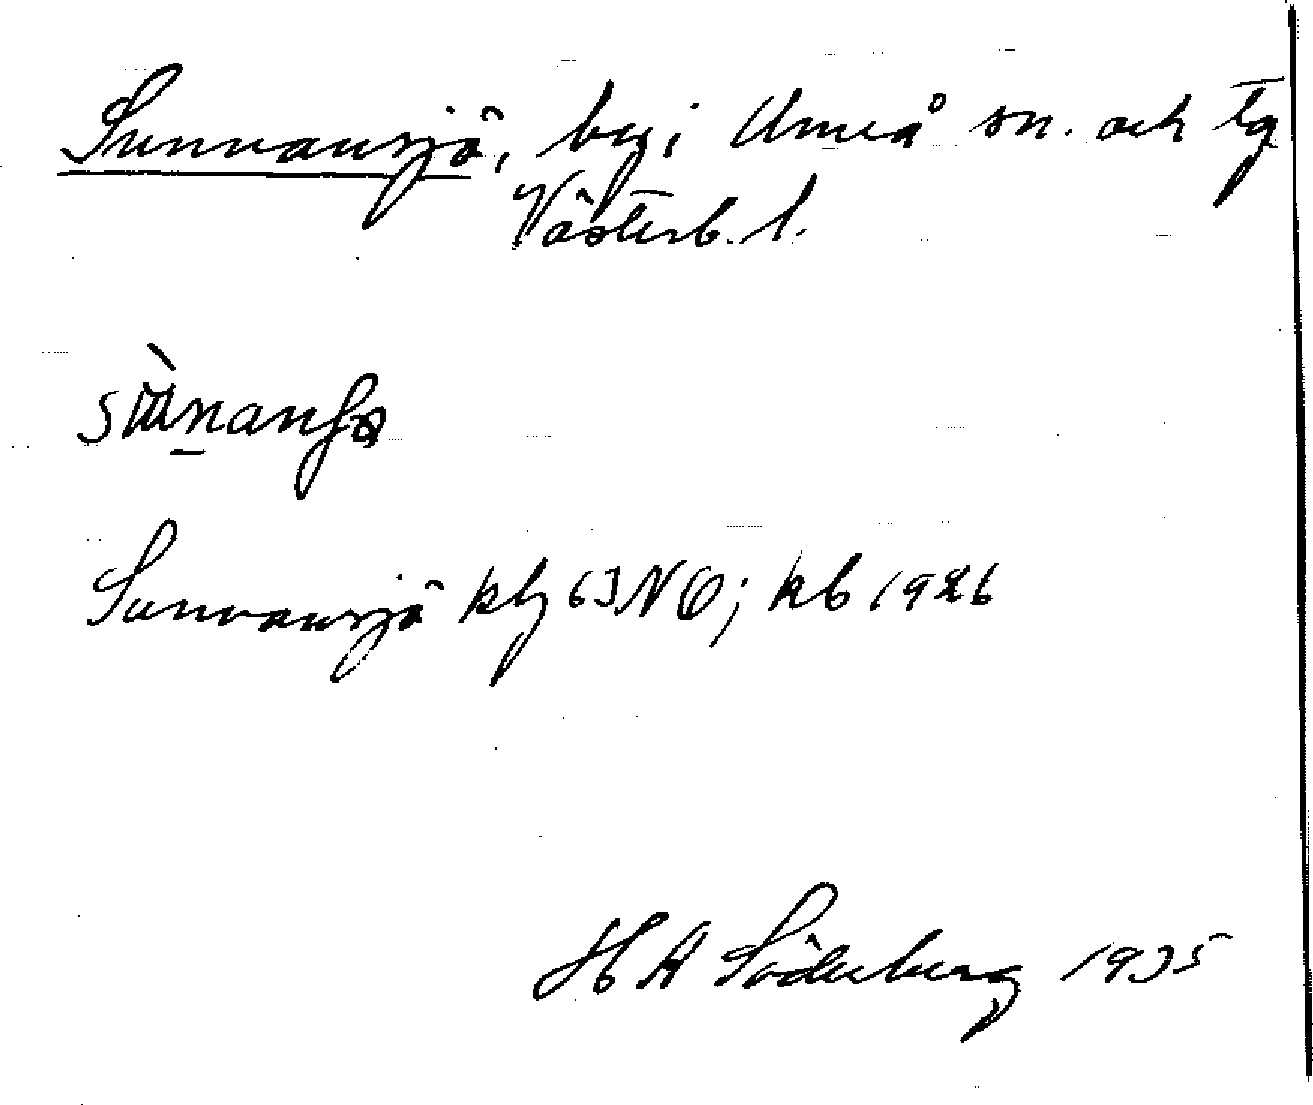 Sunnansjö, by i Umeå sn. och tg
Västerb. l.
Sunnansjö kbl 63 NO; kb 1926
H A Söderberg 1935